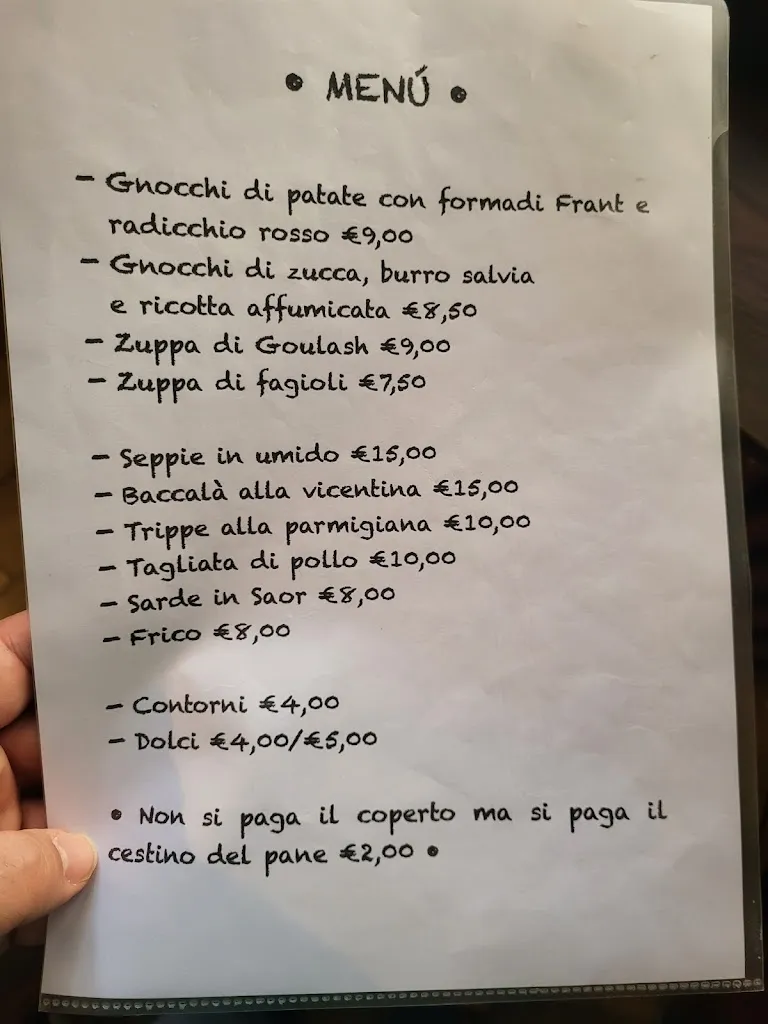 • MENÚ •
- Gnocchi di patate con formadi Frant e
radicchio rosso €9,00
- Gnocchi di zucca, burro salvia
e ricotta affumicata €8,50
- Zuppa di Goulash €9,00
- Zuppa di fagioli €7,50
- Seppie in umido €15,00
- Baccalà alla vicentina €15,00
- Trippe alla parmigiana €10,00
- Tagliata di pollo €10,00
- Sarde in Saor €8,00
- Frico €8,00
- Contorni €4,00
- Dolci €4,00/€5,00
• Non si paga il coperto ma si paga il
cestino del pane €2,00 •